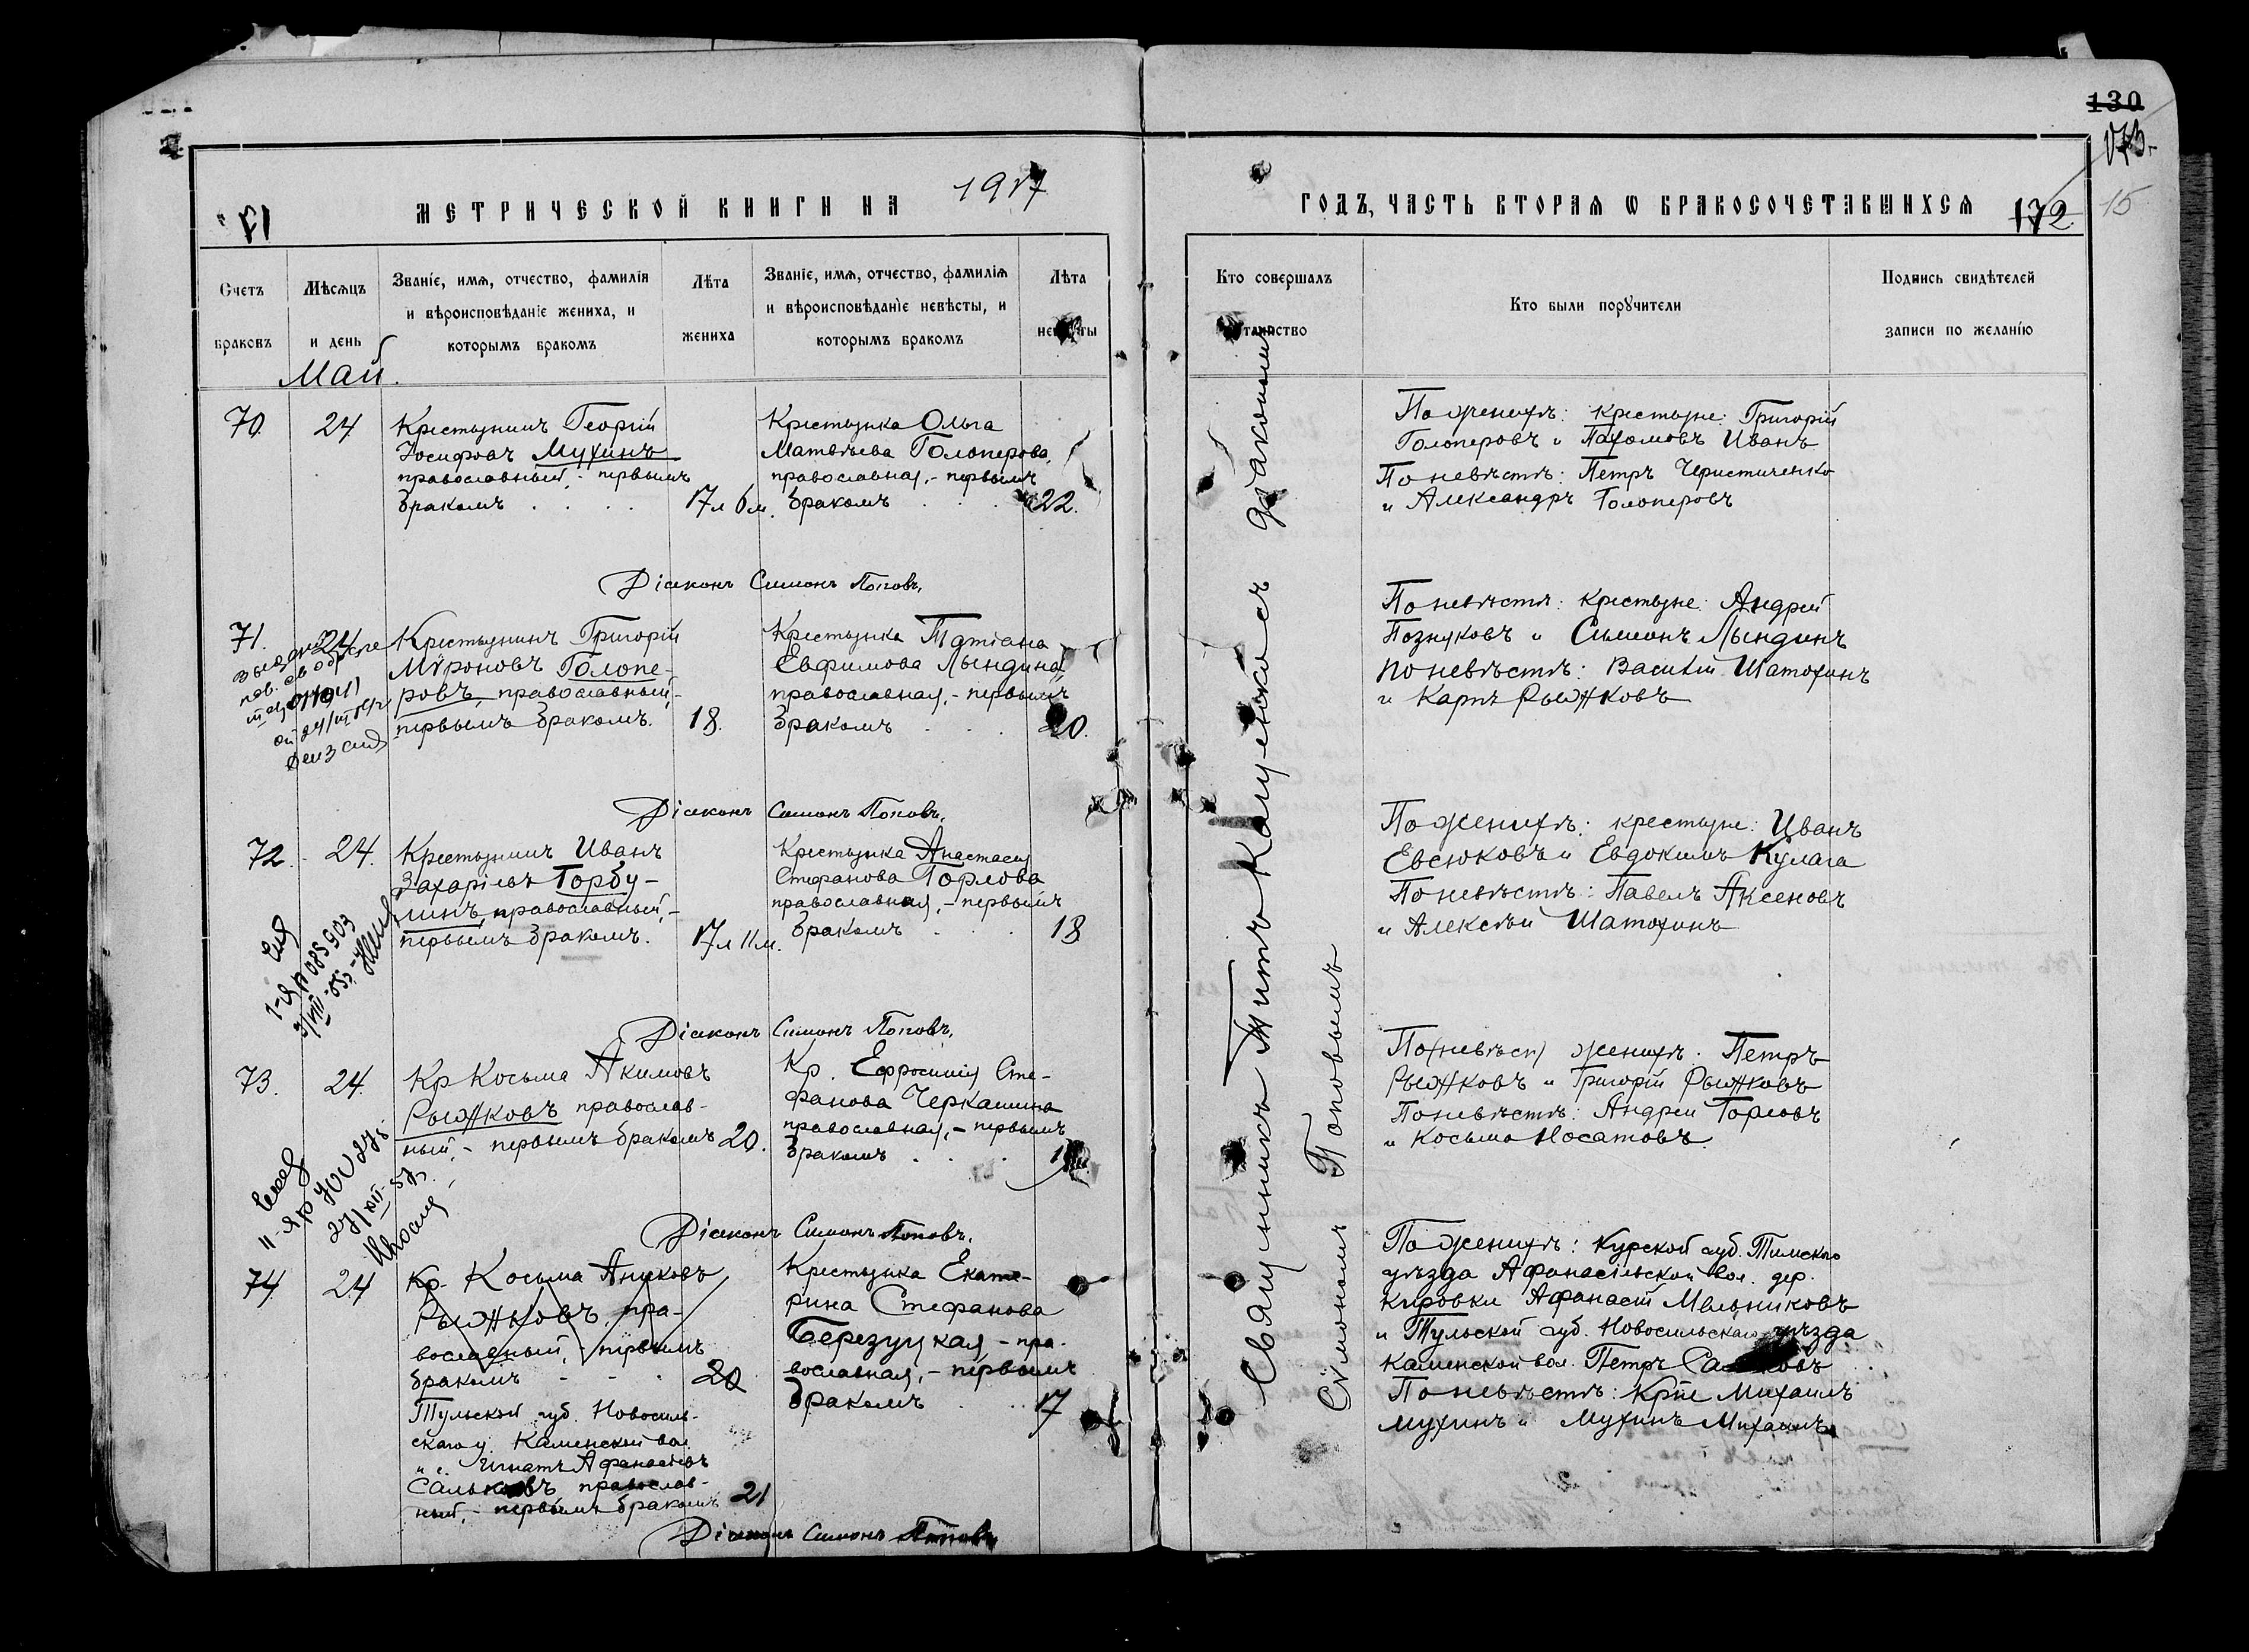 МЕТРИЧЕСКОЙ КНИГИ НА 1917
Счетъ браковъ
Мѣсяцъ и день
Званіе, имя, отчество, фамилія
и вѣроисповѣданіе жениха, и
которымъ бракомъ
Лѣта
жениха
Званіе, имя, отчество, фамилія
и вѣроисповѣданіе невѣсты, и
которымъ бракомъ
Лѣта
невѣсты
Май.
70.
24
Крестьянинъ Георгій
Іосифовъ Мухинъ
православный, - первымъ
бракомъ
17 л 6 м.
Крестьянка Ольга
Матвѣева Голоперова,
православная, - первымъ
бракомъ
22.
Діаконъ Симонъ Поповъ.
71.
24
Крестьянинъ Григорій
Мѵроновъ Голопе-
ровъ, православный, -
первымъ бракомъ.
18.
Крестьянка Татіана
Евфимова Лындина,
православная, - первымъ
бракомъ
20.
Діаконъ Симонъ Поповъ.
72.
24.
Крестьянинъ Иванъ
Захаріевъ Горбу-
линъ, православный, -
первымъ бракомъ.
17 л 11 м.
Крестьянка Анастасія
Стефанова Горлова
православная, - первымъ
бракомъ
18
Діаконъ Симонъ Поповъ.
73.
24.
Кр Косьма Акимовъ
Рыжковъ православ-
ный, - первымъ бракомъ
20.
Кр. Ефросинія Сте-
фанова Черкашина
православная, - первымъ
бракомъ
Діаконъ Симонъ Поповъ.
74.
24
Кр. Косьма Акимовъ
Рыжковъ, пра-
вославный, - первымъ
бракомъ
20
Тульской губ. Новосиль-
скаго у. Каменской вол.
Игнатъ Афанасіевъ
Сальковъ православ-
ный, - первымъ бракомъ
21
Крестьянка Екате-
рина Стефанова
Березуцкая, - пра-
вославная, - первымъ
бракомъ
17
Діаконъ Симонъ Поповъ
130
15
172.
ГОДЪ, ЧАСТЬ ВТОРАЯ Ѡ БРАКОСОЧЕТАВШИХСЯ
Кто совершалъ
таинство
Кто были поручители
Подпись свидѣтелей
записи по желанію
Священникъ Титъ Каменскій съ діакономъ
Сѵмономъ Поповымъ
По женихѣ: крестьяне: Григорій
Голоперовъ и Пахомовъ Иванъ
По невѣстѣ: Петръ
и Александръ Голоперовъ
По невѣстѣ: крестьяне: Андрей
Позняковъ и Сѵмонъ Лындинъ
по невѣстѣ: Василій Шатохинъ
и Карпъ Рыжковъ
По женихѣ: крестьяне: Иванъ
Евсюковъ и Евдокимъ Кулага
По невѣстѣ: Павелъ Аксеновъ
и Алексѣй Шатохинъ
По (невѣст) женихѣ. Петръ
Рыжковъ и Григорій Рыжковъ
По невѣстѣ: Андрей Горловъ
и Косьма Носатовъ.
По женихѣ: Курской губ. Тимскаго
уѣзда Афанасіевской вол. дер.
Кировки Афанасій Мельниковъ
и Тульской губ. Новосильскаго уѣзда
Каменской вол. Петръ
По невѣстѣ: Кр-не Михаилъ
Мухинъ и Мухинъ Михаилъ